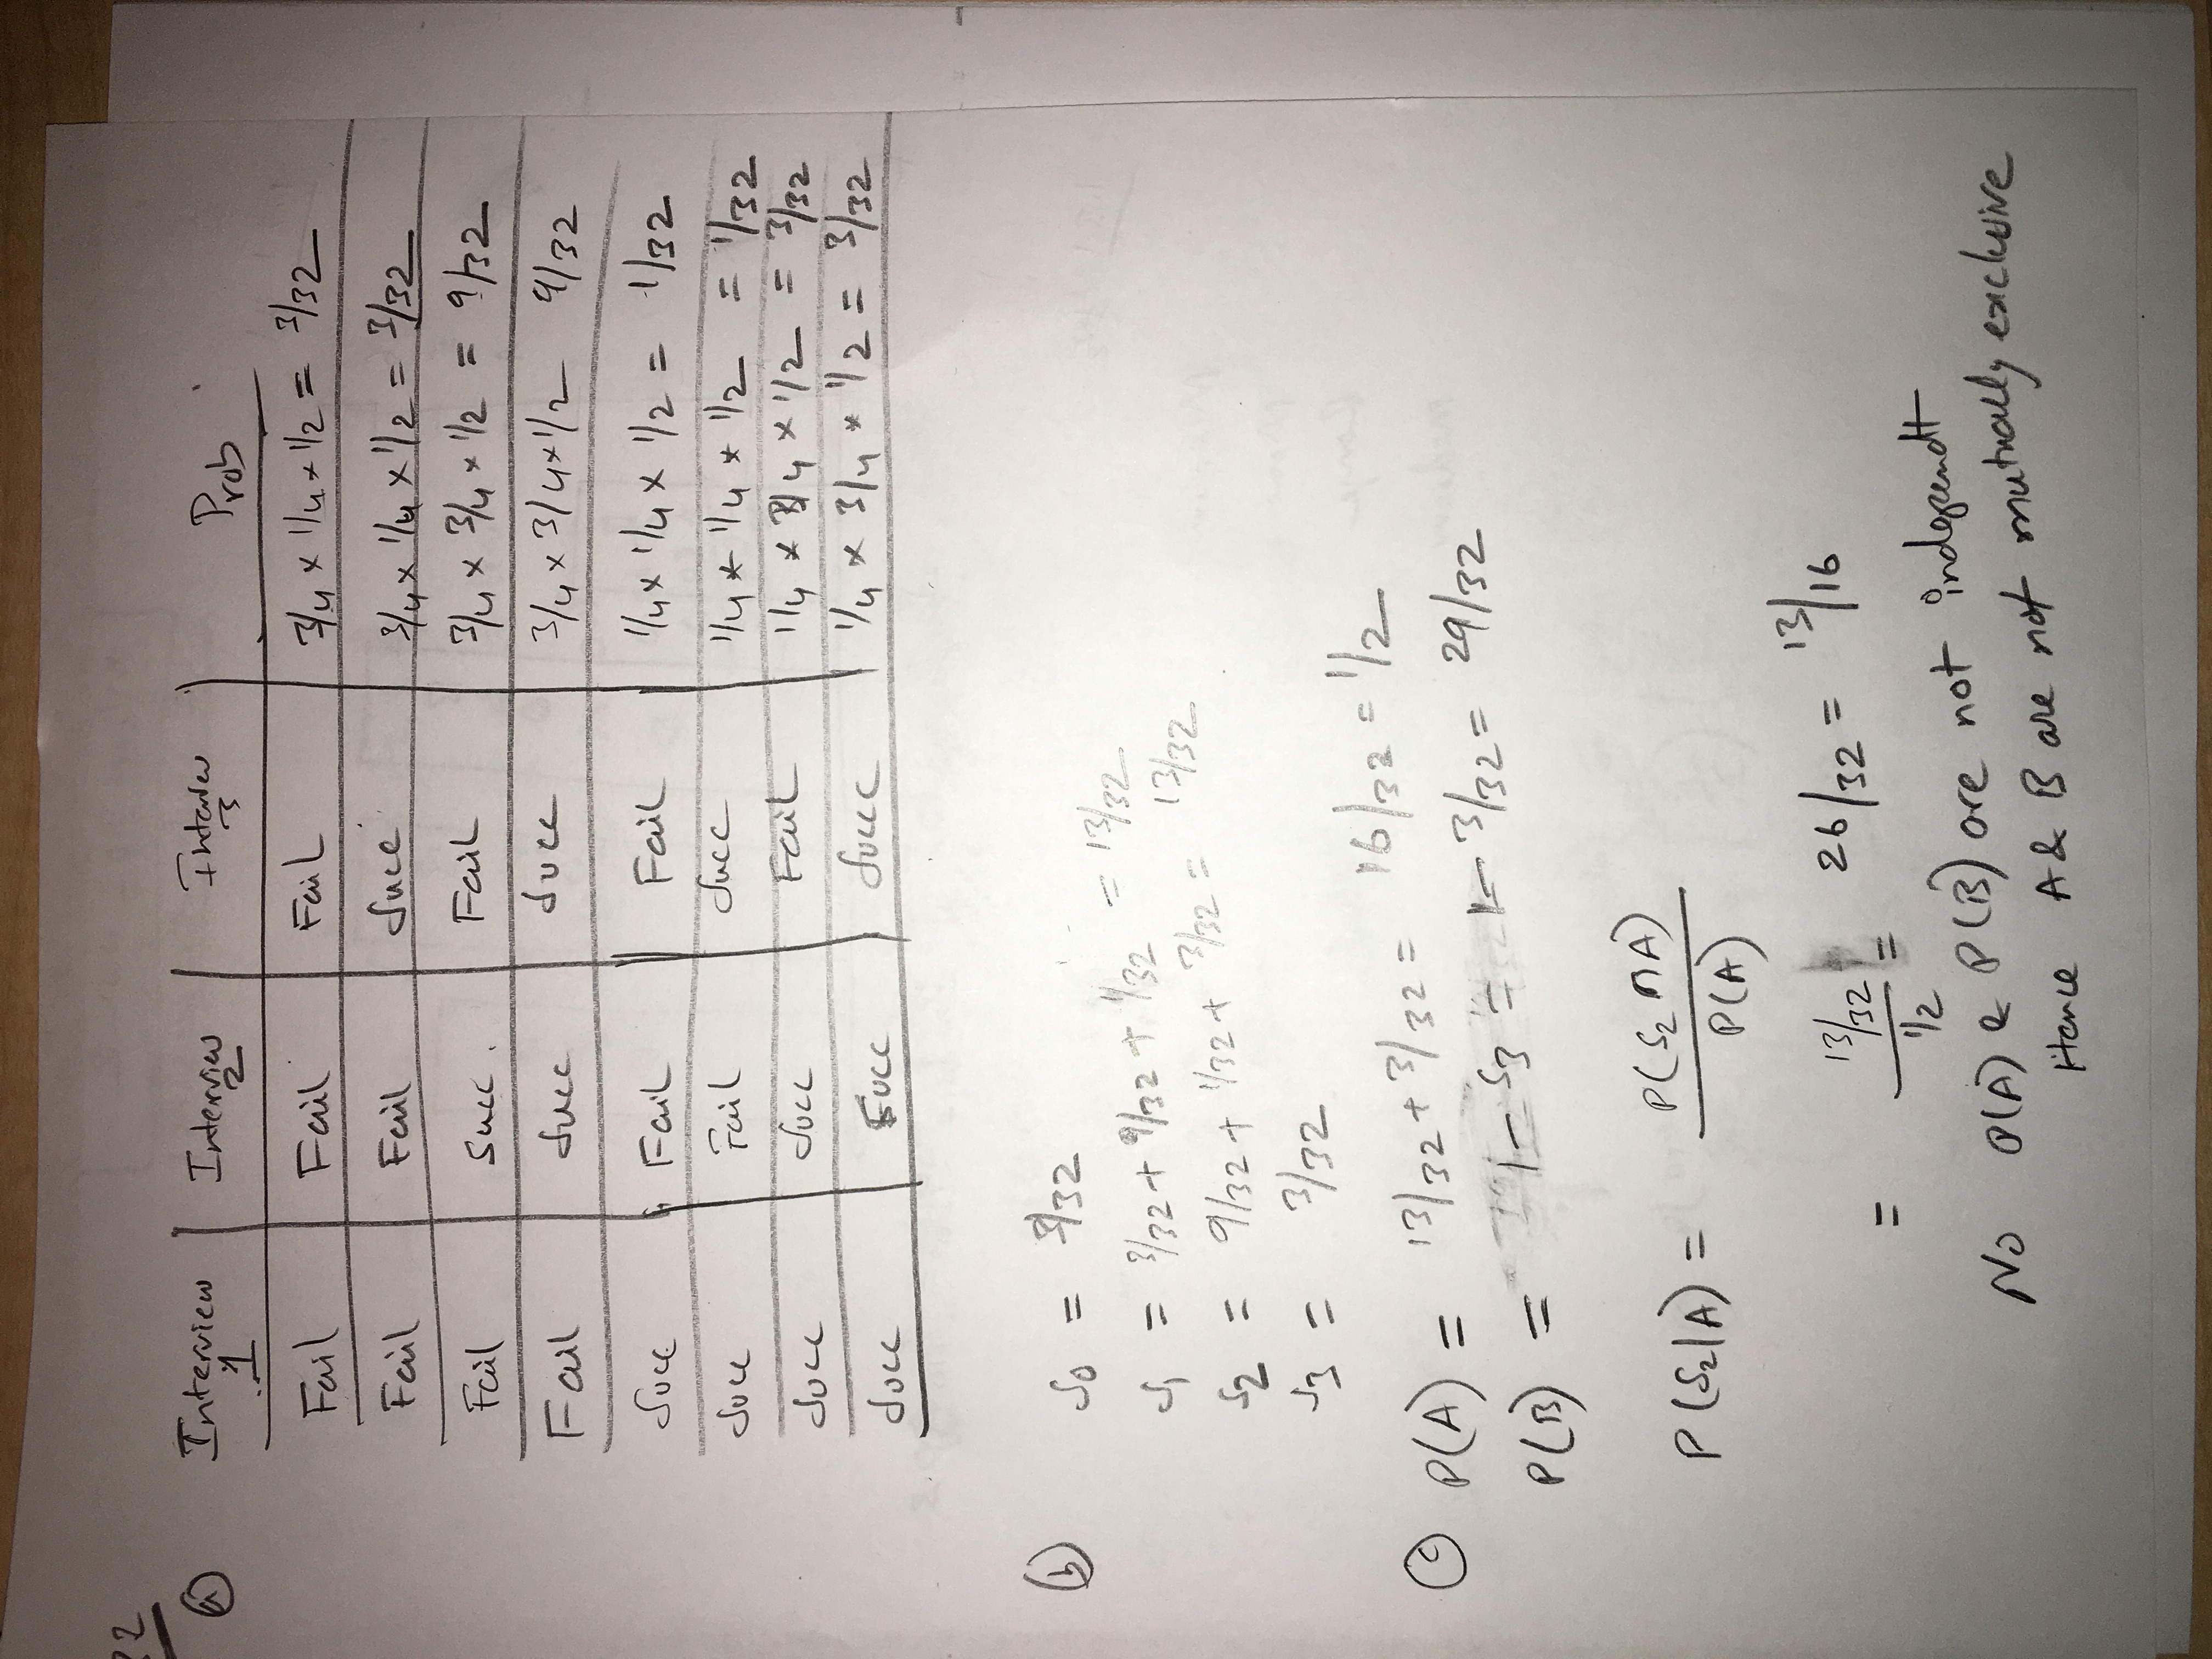 22
(a) Interview 1 Interview 2 Interview 3 Prob
Fail Fail Fail 3/4 × 1/4 × 1/2 = 3/32
Fail Fail Succ 3/4 × 1/4 × 1/2 = 3/32
Fail Succ. Fail 3/4 × 3/4 × 1/2 = 9/32
Fail Succ Succ 3/4 × 3/4 × 1/2 9/32
Succ Fail Fail 1/4 × 1/4 × 1/2 = 1/32
Succ Fail Succ 1/4 × 1/4 × 1/2 = 1/32
Succ Succ Fail 1/4 × 3/4 × 1/2 = 3/32
Succ Succ Succ 1/4 × 3/4 × 1/2 = 3/32
(b) S0 = 3/32
S1 = 3/32 + 9/32 + 1/32 = 13/32
S2 = 9/32 + 1/32 + 3/32 = 13/32
S3 = 3/32
(c) P(A) = 13/32 + 3/32 = 16/32 = 1/2
P(B) = 1 - S3 = 1 - 3/32 = 29/32
P(S2|A) = P(S2 ∩ A)
P(A)
= 13/32 = 26/32 = 13/16
1/2
No P(A) & P(B) are not independt
Hence A & B are not mutually exclusive